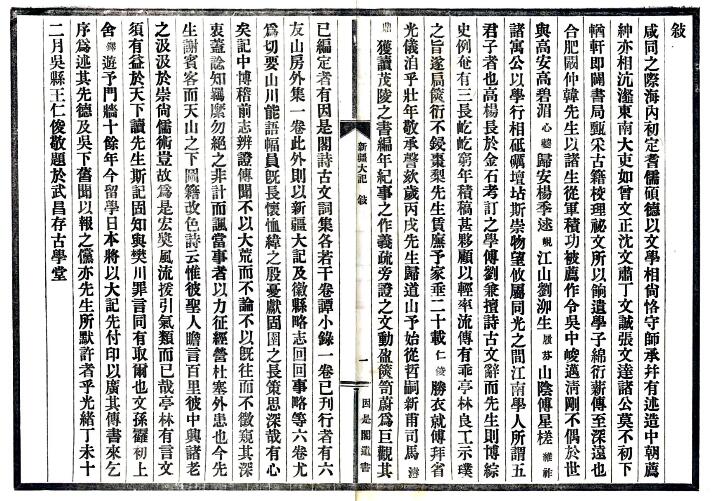 敍
咸同之際海內初定耆儒碩德以文學相尙恪守師承幷有述造中朝薦
紳亦相沆瀣東南大吏如曾文正沈文肅丁文誠張文達諸公莫不初下
輶軒即闢書局甄采古籍梭理祕文所以餉遺學子綿衍薪傳至深遠也
合肥闞仲韓先生以諸生從軍積功被薦作令吳中峻邁清剛不偶於世
與高安高碧湄心夔歸安楊季逑峴江山劉泖生履芬山陰傅星槎
諸寓公以學行相砥礪壇坫斯崇物望攸屬同光之間江南學人所謂五
君子者也高楊長於金石考訂之學傅劉兼擅詩古文辭而先生則博綜
史例奄有三長屹屹窮年積稿甚夥顧以輕率流傳有乖亭林良工示璞
之旨遂扃篋衍不鋟棗梨先生賃廡予家垂二十載仁俊勝衣就傅拜省
光儀洎乎壯年敬承謦欬歲丙戌先生歸道山予始從哲嗣新甫司馬濬
鼎獲讀茂陵之書編年紀事之作義疏旁證之文動盈篋笥蔚爲巨觀其
新疆大記 敍 一 因是閣遺書
已編定者有因是閣詩古文詞集各若干卷譚小錄一卷已刊行者有六
友山房外集一卷此外則以新疆大記及徽縣略志回回事略等六卷尤
爲切要山川能語幅員旣長懷恤緯之殷憂獻固圉之長策思深哉有心
矣記中博稽前志辨證傳聞不以大荒而不論不以旣往而不徵窺其深
衷蓋諗知羈縻勿絕之非計而諷當事者以力征經營杜塞外患也今先
生謝賓客而天山之下圖籍改色詩云惟彼聖人瞻言百里彼中興諸老
之汲汲於崇尙儒術豈故爲是宏奬風流援引氣類而已哉亭林有言文
須有益於天下讀先生斯記固知與樊川罪言同有取爾也文孫初上
舍鐸遊予門牆十餘年今留學日本將以大記先付印以廣其傳書來乞
序爲述其先德及吳下舊聞以報之儻亦先生所默許者乎光緒丁未十
二月吳縣王仁俊敬題於武昌存古學堂